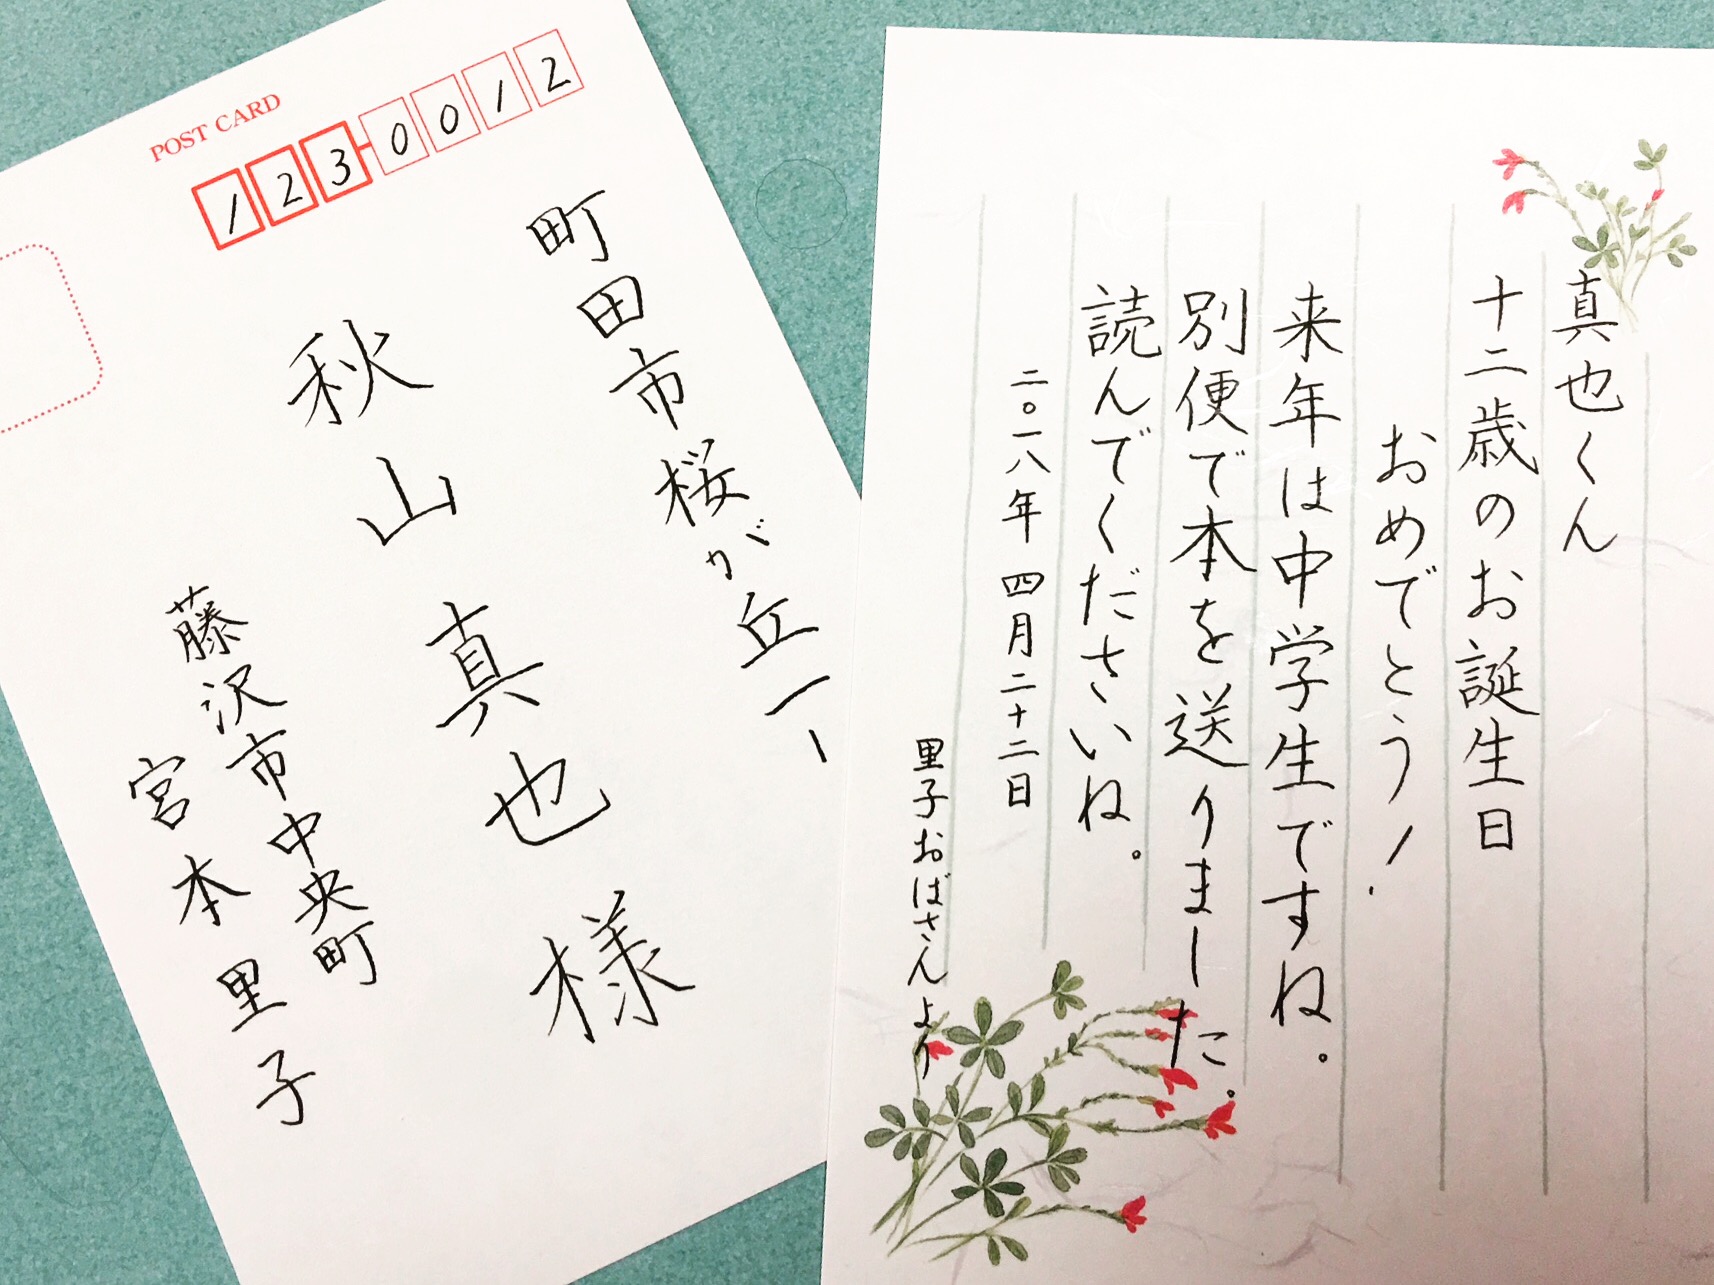 POST CARD
123-0012
町田市桜が丘一ー一
秋山真也様
藤沢市中央町
宮本里子
真也くん
十二歳のお誕生日
おめでとう!
来年は中学生ですね。
別便で本を送りました。
読んでくださいね。
二〇一八年 四月二十二日
里子おばさんより